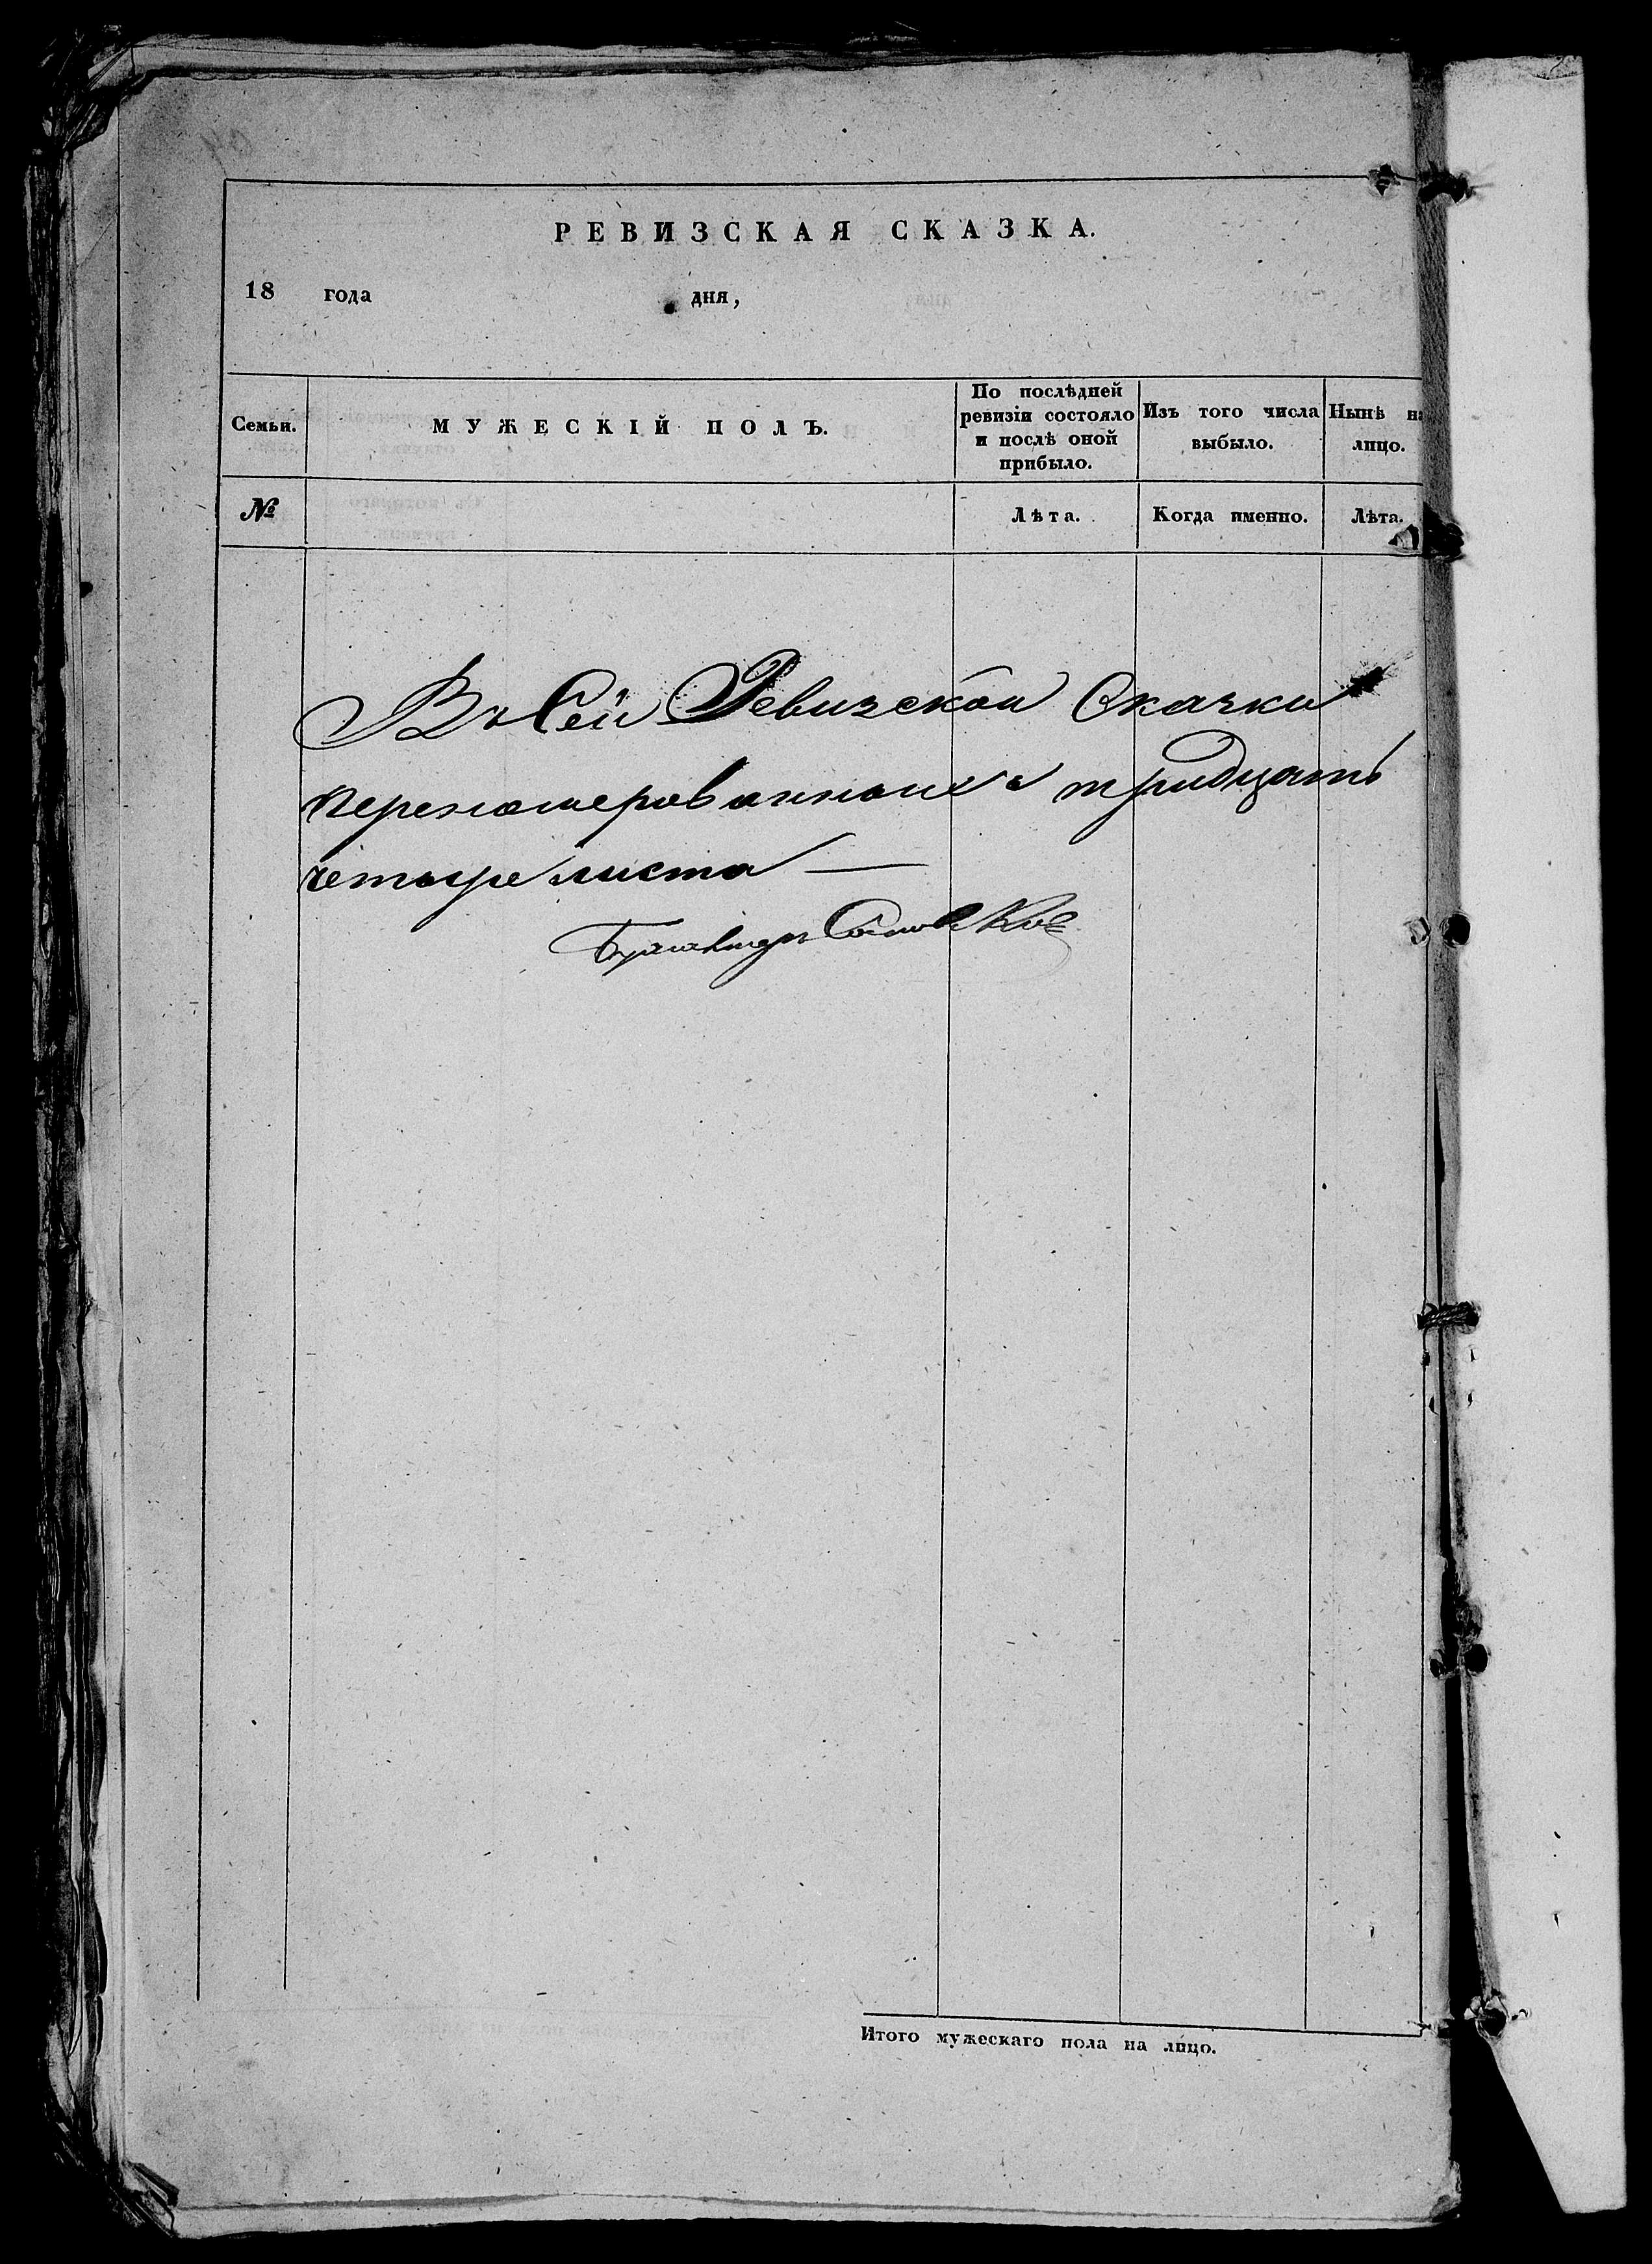 РЕВИЗСКАЯ СКАЗКА.
18 года дня,
Семьи.
МУЖЕСКІЙ ПОЛЪ.
По послѣдней ревизіи состояло и послѣ оной прибыло.
Изъ того числа выбыло.
Нынѣ на лицо.
№
Лѣта.
Когда именно.
Лѣта.
Въ Сей Ревизской Сказки
перномерованныхъ тридцать
четыре листа —
Бухгалтеръ
Итого мужескаго пола на лицо.